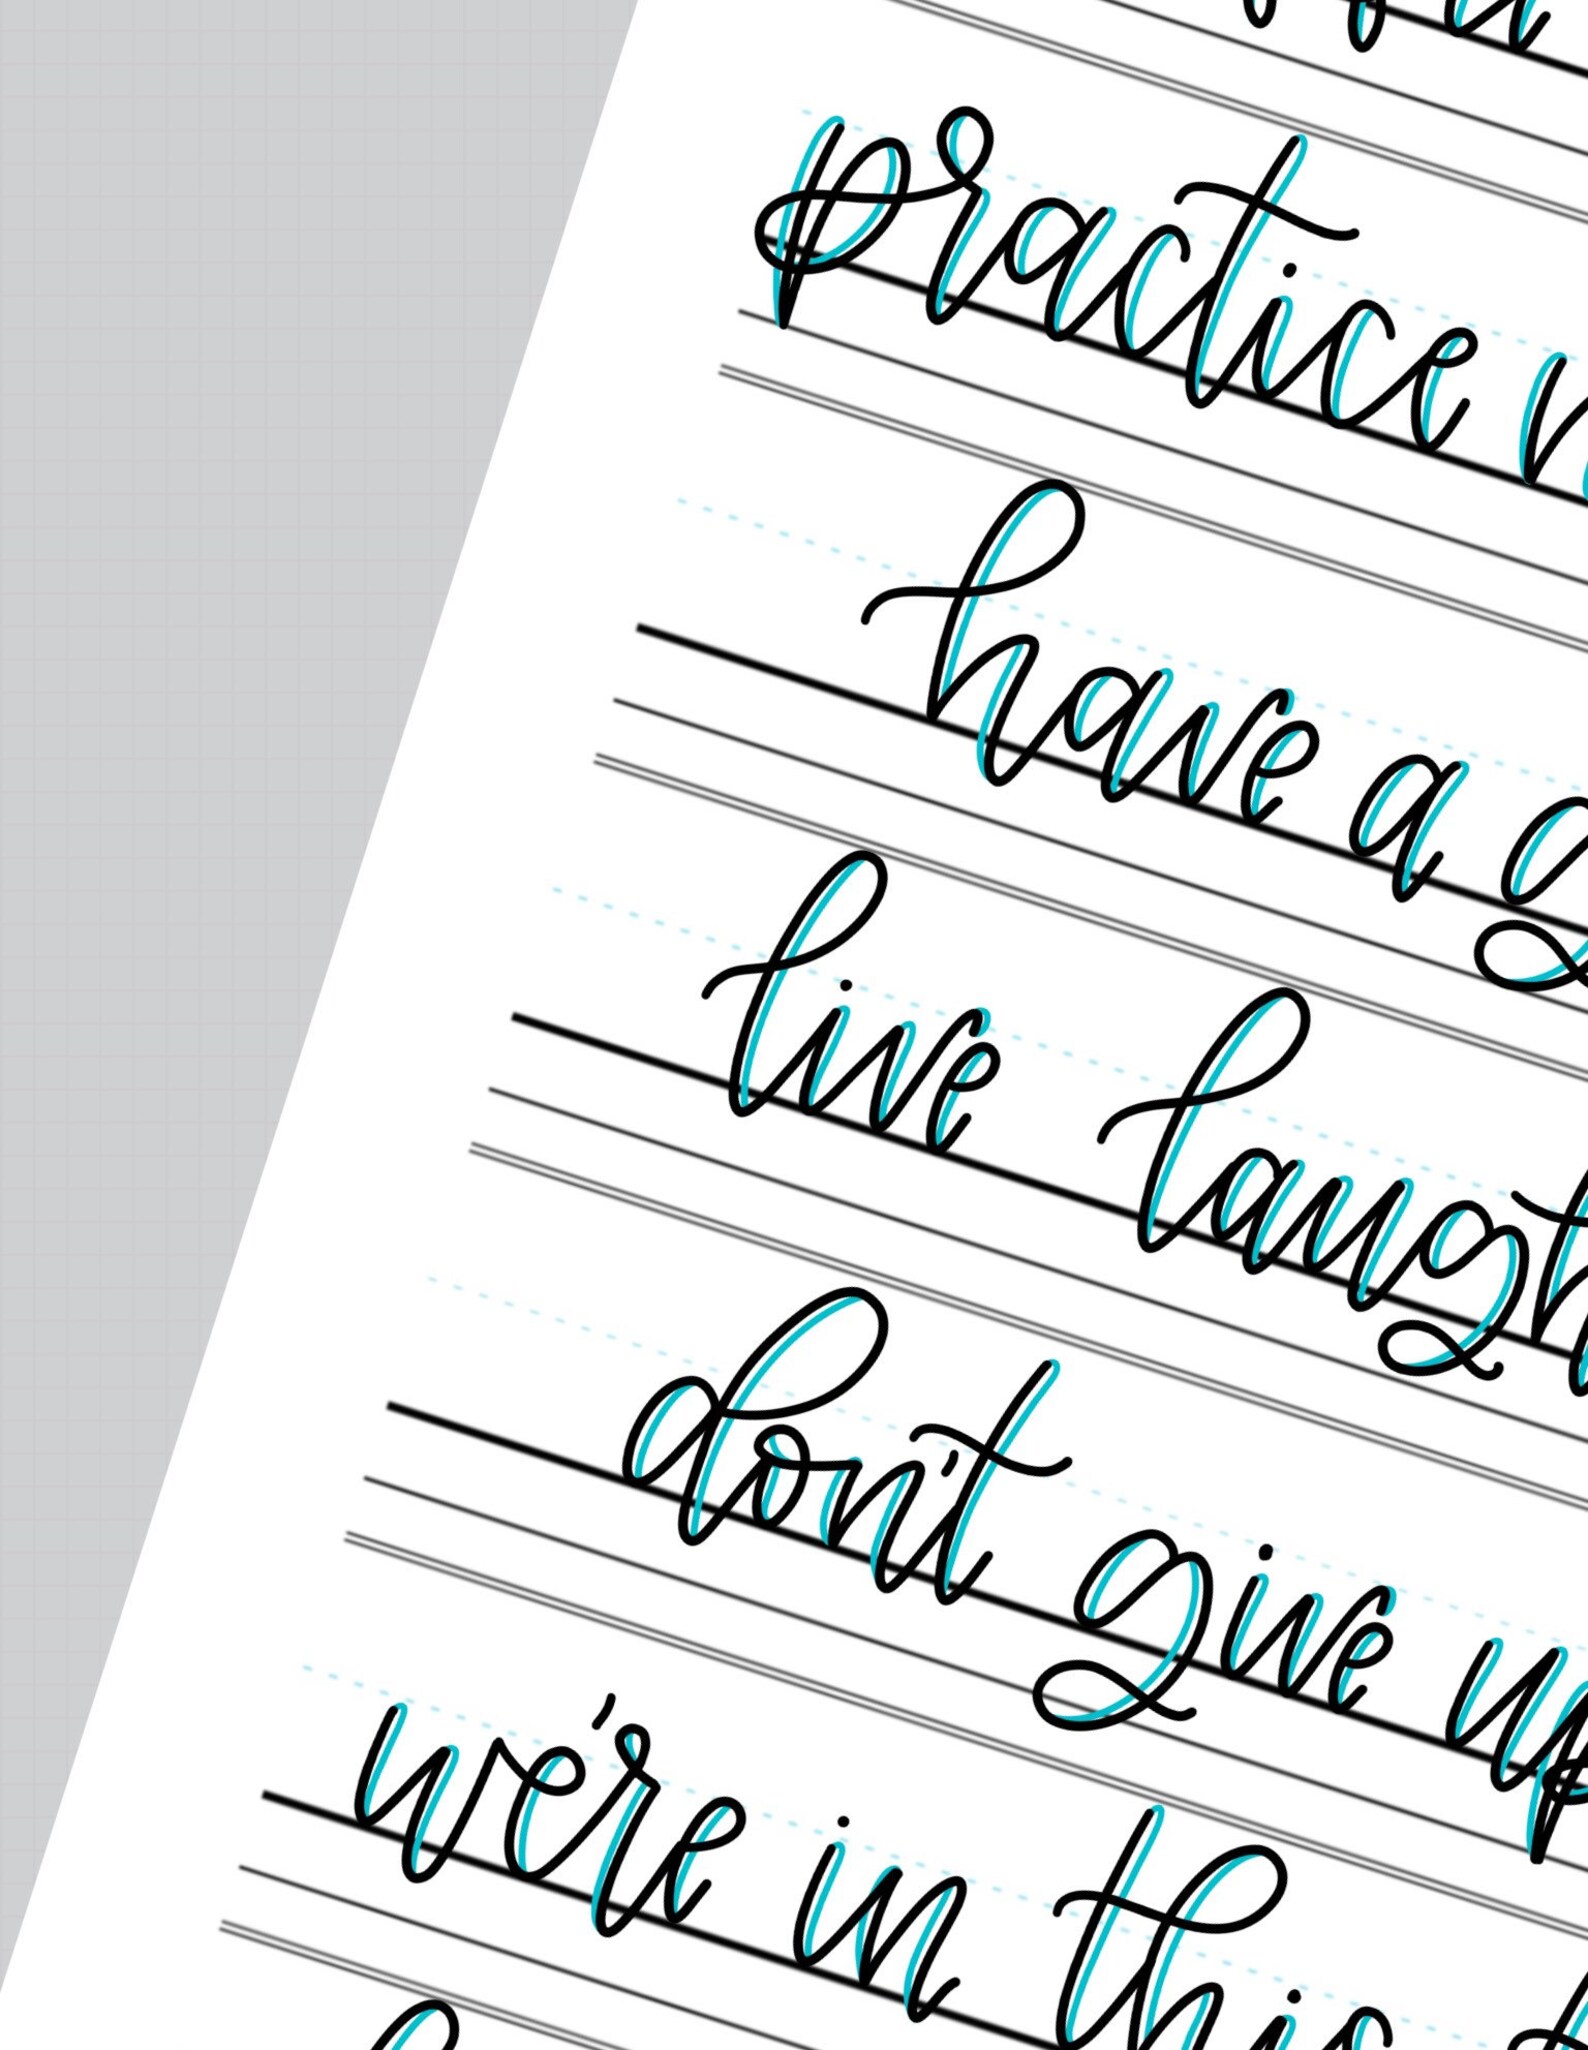 practice
have a
live laugh
don't give up
we're in this